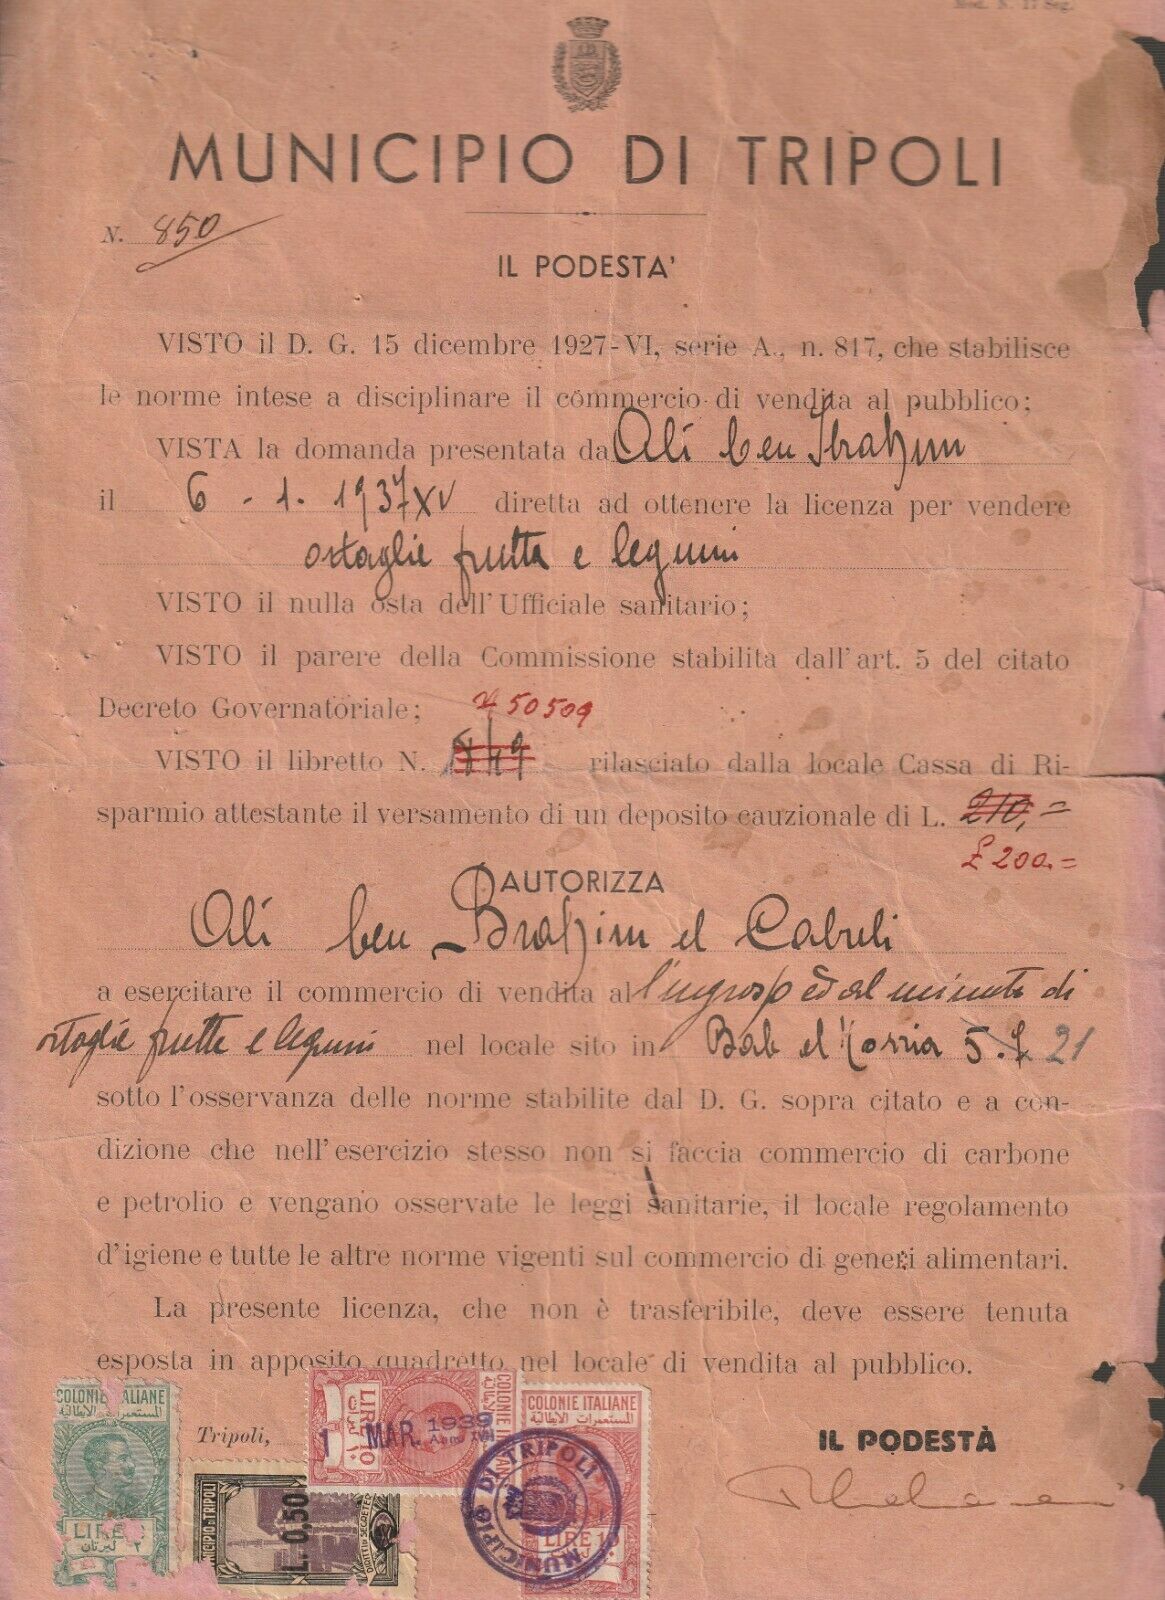 Mod. N. 17 Seg.
MUNICIPIO DI TRIPOLI
N. 850
IL PODESTA'
VISTO il D. G. 15 dicembre 1927-VI, serie A., n. 817, che stabilisce
le norme intese a disciplinare il commercio di vendita al pubblico;
VISTA la domanda presentata da Ali ben Ibrahim
il 6 - 1. 1937 XV diretta ad ottenere la licenza per vendere
ortaglie frutta e legumi
VISTO il nulla osta dell'Ufficiale sanitario;
VISTO il parere della Commissione stabilita dall'art. 5 del citato
Decreto Governatoriale; 50509
VISTO il libretto N. rilasciato dalla locale Cassa di Ri-
sparmio attestante il versamento di un deposito cauzionale di L. 210,=
£ 200.=
AUTORIZZA
Ali ben Brahim el Cabuli
a esercitare il commercio di vendita al l'ingrosso ed al minuto di
ortaglie frutta e legumi nel locale sito in Bab el 5. 21
sotto l'osservanza delle norme stabilite dal D. G. sopra citato e a con-
dizione che nell'esercizio stesso non si faccia commercio di carbone
e petrolio e vengano osservate le leggi sanitarie, il locale regolamento
d'igiene e tutte le altre norme vigenti sul commercio di generi alimentari.
La presente licenza, che non è trasferibile, deve essere tenuta
esposta in apposito quadretto nel locale di vendita al pubblico.
COLONIE ITALIANE
المستعمرات الايطالية
LIRE
ليرتان ٢
Tripoli,
1 MAR. 1939
Anno XVII
COLONIE
LIRE 10
COLONIE ITALIANE
المستعمرات الايطالية
LIRE 10
MUNICIPIO DI TRIPOLI
MUNICIPIO DI TRIPOLI
L. 0,50
DIRITTI DI SEGRETER
IL PODESTÀ